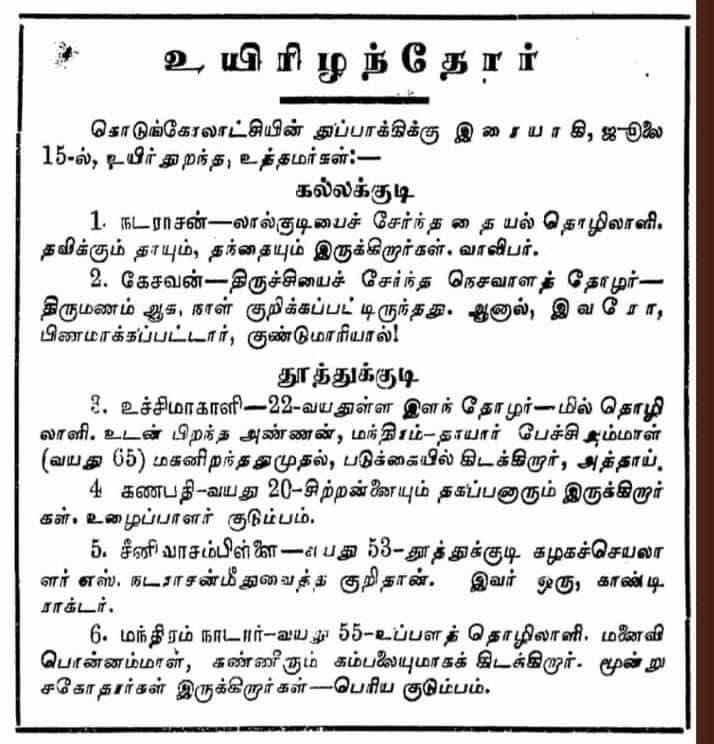 உயிரிழந்தோர்
கொடுங்கோலாட்சியின் துப்பாக்கிக்கு இரையாகி, ஜூலை
15-ல், உயிர்துறந்த, உத்தமர்கள்:—
கல்லக்குடி
1. நடராசன்—லால்குடியைச் சேர்ந்த தையல் தொழிலாளி.
தவிக்கும் தாயும், தந்தையும் இருக்கிறார்கள். வாலிபர்.
2. கேசவன்—திருச்சியைச் சேர்ந்த நெசவாளத் தோழர்—
திருமணம் ஆக, நாள் குறிக்கப்பட்டிருந்தது. ஆனால், இவரோ,
பிணமாக்கப்பட்டார், குண்டுமாரியால்!
தூத்துக்குடி
3. உச்சிமாகாளி—22-வயதுள்ள இளந் தோழர்—மில் தொழி
லாளி. உடன் பிறந்த அண்ணன், மந்திரம்-தாயார் பேச்சிஅம்மாள்
(வயது 65) மகனிறந்ததுமுதல், படுக்கையில் கிடக்கிறார், அத்தாய்.
4 கணபதி-வயது 20-சிற்றன்னையும் தகப்பனாரும் இருக்கிறார்
கள். உழைப்பாளர் குடும்பம்.
5. சீனிவாசம்பிள்ளை—வயது 53-தூத்துக்குடி கழகச்செயலா
ளர் எஸ். நடராசன்மீதுவைத்த குறிதான். இவர் ஒரு, காண்டி
ராக்டர்.
6. மந்திரம் நாடார்-வயது 55-உப்பளத் தொழிலாளி. மனைவி
பொன்னம்மாள், கண்ணீரும் கம்பலையுமாகக் கிடக்கிறார். மூன்று
சகோதரர்கள் இருக்கிறார்கள்—பெரிய குடும்பம்.